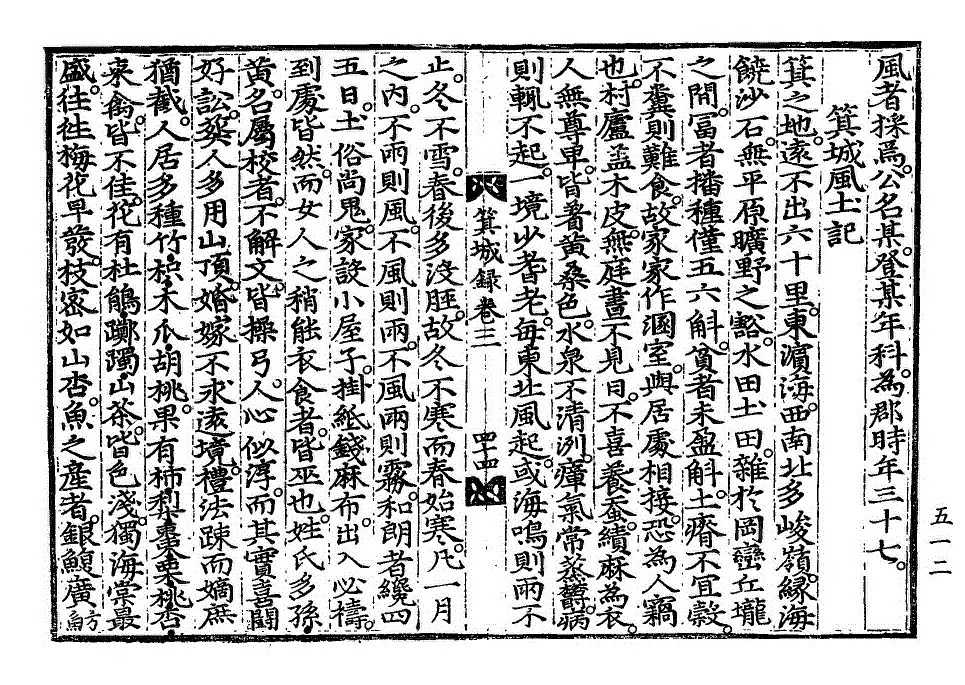 風者採焉。公名某。登某年科。為郡時年三十七。
箕城風土記
箕之地。遠不出六十里。東濵海。西南北多峻嶺。縁海
饒沙石。無平原曠野之豁。水田土田。雜於岡巒丘壠
之間。冨者播種僅五六斛。貧者未盈斛。土瘠不宜糓。
不糞則難食。故家家作溷室。與居處相接。恐為人竊
也。村廬盖木皮。無庭晝不見日。不喜養蚕。績麻為衣。
人無尊卑。皆着黄桑色。水泉不清洌。瘴氣常蒸欝。病
則輒不起。一境少耆老。毎東北風起。或海鳴則雨不
止。冬不雪。春後多沒脛。故冬不寒而春始寒。凡一月
之內。不雨則風。不風則雨。不風雨則霧。和朗者纔四
五日。土俗尚鬼。家設小屋子。掛紙錢麻布。出入必禱。
到處皆然。而女人之稍能衣食者。皆巫也。姓氏多孫
黄。名屬校者。不解文。皆操弓。人心似淳。而其實喜鬪
好訟。葬人多用山頂。婚嫁不求遠境。禮法疎而嫡庶
猶截。人居多種竹枳木瓜胡桃。果有柿梨棗栗桃杏。
柰禽。皆不佳。花有杜鵑躑躅山茶。皆色淺。獨海棠最
盛。往往梅花早發。枝密如山杏。魚之産者。銀鰒廣魚方
箕城録卷三
四十四
五一二